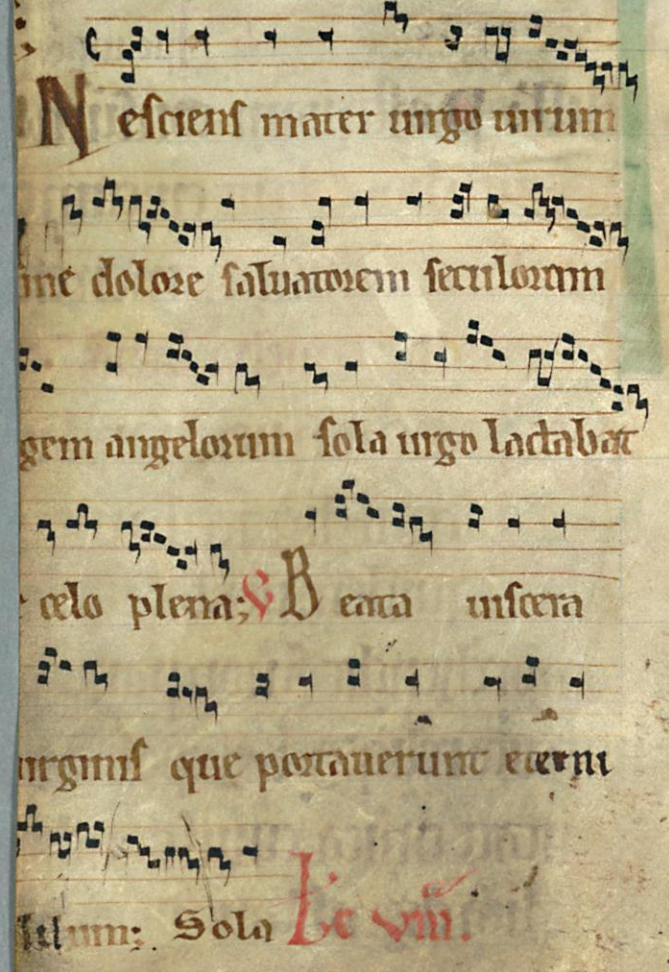 Nesciens mater uirgo uirum
ine dolore saluatorem seculorum
gem angelorum sola uirgo lactabat
celo plena; V Beata uiscera
uirginis que portauerunt eterni
filium; Sola Le viii.